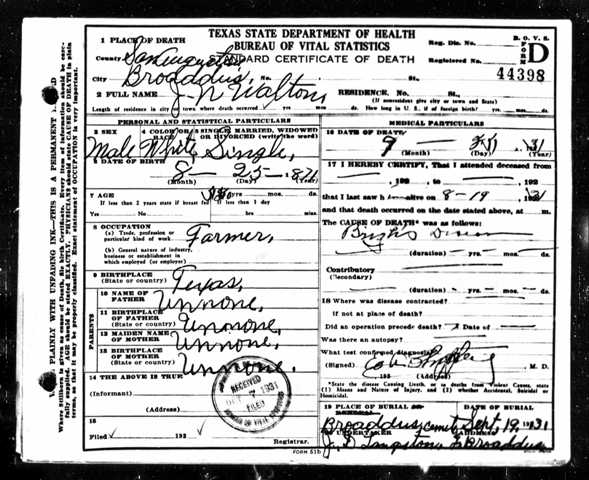 TEXAS STATE DEPARTMENT OF HEALTH
BUREAU OF VITAL STATISTICS
STANDARD CERTIFICATE OF DEATH
B. O. V. S.
FORM D
44398
Reg. Dis. No.
Registered No.
1 PLACE OF DEATH
County San Augustine
City Broaddus, No. St.
2 FULL NAME J. N. Walton
RESIDENCE. No. St.,
(If nonresident give city or town and State)
Length of residence in city or town where death occurred yrs. mos. ds. How long in U. S. if of foreign birth? yrs. mos. ds.
PERSONAL AND STATISTICAL PARTICULARS
3 SEX
4 COLOR OR RACE
5 SINGLE, MARRIED, WIDOWED OR DIVORCED (write the word)
Male White Single,
6 DATE OF BIRTH
8 - 25 - 1871
(Month) (Day) (Year)
7 AGE yrs. mos. ds.
If less than 2 years state if breast fed If less than 1 day
Yes No hrs. min.
8 OCCUPATION
(a) Trade, profession or particular kind of work
Farmer,
(b) General nature of industry, business or establishment in which employed (or employer)
9 BIRTHPLACE
(State or country) Texas,
PARENTS
10 NAME OF FATHER Unnone,
11 BIRTHPLACE OF FATHER
(State or country) Unnone,
12 MAIDEN NAME OF MOTHER Unnone,
13 BIRTHPLACE OF MOTHER
(State or country) Unnone.
14 THE ABOVE IS TRUE
(Informant)
(Address)
RECEIVED
7 1931
FILED
BUREAU OF VITAL STATISTICS
15
Filed 192
Registrar.
MEDICAL PARTICULARS
16 DATE OF DEATH
9 31
(Month) (Day) (Year)
17 I HEREBY CERTIFY, That I attended deceased
from , 192 , to , 192
that I last saw h alive on 8-19, 1931
and that death occurred on the date stated above, at m.
The CAUSE OF DEATH* was as follows:
Brights Disease
(duration) yrs. mos. ds.
Contributory
(Secondary)
(duration) yrs. mos. ds.
18 Where was disease contracted?
If not at place of death?
Did an operation precede death? Date of
Was there an autopsy?
What test confirmed diagnosis?
(Signed) M. D.
, 193 (Address)
*State the disease Causing Death, or in deaths from Violent Causes, state (1) Means and Nature of Injury, and (2) whether Accidental, Suicidal or Homicidal.
19 PLACE OF BURIAL DATE OF BURIAL
Broaddus, Sept. 19, 1931
20 UNDERTAKER ADDRESS
J. D. Langston, Broaddus
FORM 51b